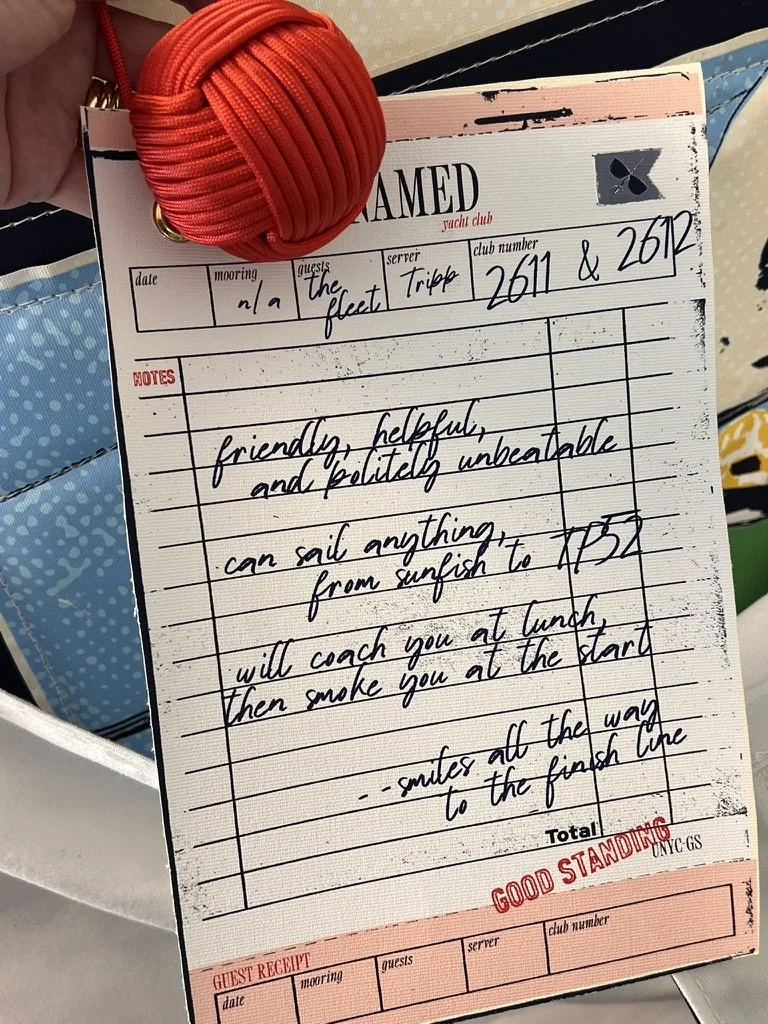 NAMED
yacht club
date mooring guests server club number
n/a the fleet Tripp 2611 & 2612
NOTES
friendly, helpful,
and politely unbeatable
can sail anything,
from sunfish to TP52
will coach you at lunch,
then smoke you at the start
--smiles all the way
to the finish line
Total
GOOD STANDING
UNYC-GS
GUEST RECEIPT
date mooring guests server club number